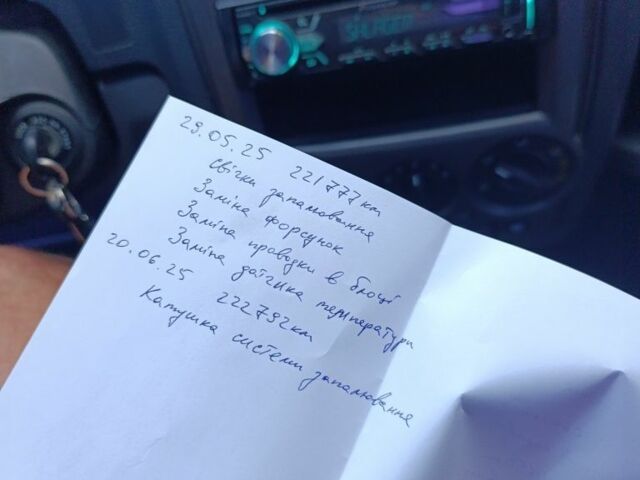 SALAGER
29.05.25 221777км
Свічки запалювання
Заміна форсунок
Заміна проводки в блоці
Заміна датчика температури
20.06.25 222792км
Катушка системи запалювання